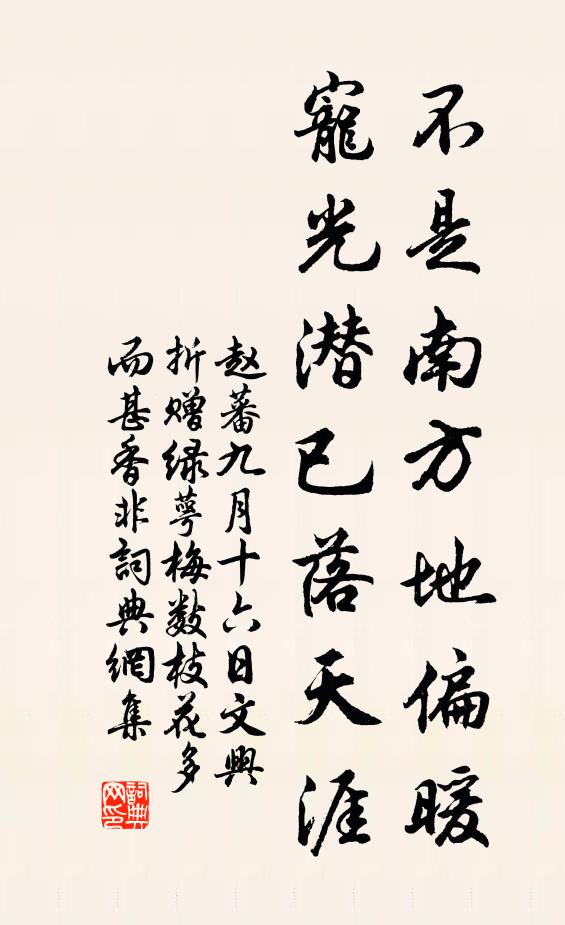 不是南方地偏暖
寵光潜已落天涯
赵蕃九月十六日文興
折赠绿萼梅数枝花多
而甚香非詞典網集
詞典
网印